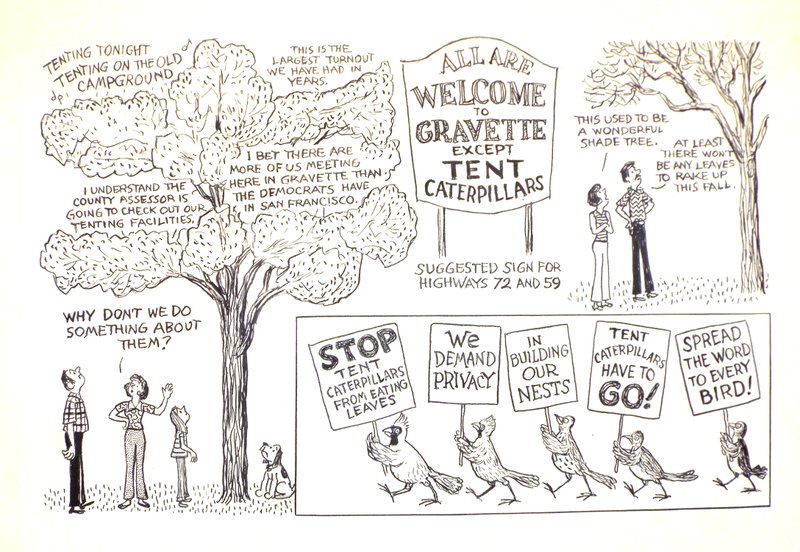 TENTING TONIGHT
TENTING ON THE OLD
CAMPGROUND
THIS IS THE
LARGEST TURNOUT
WE HAVE HAD IN
YEARS.
I UNDERSTAND THE
COUNTY ASSESSOR IS
GOING TO CHECK OUT OUR
TENTING FACILITIES.
I BET THERE ARE
MORE OF US MEETING
HERE IN GRAVETTE THAN
THE DEMOCRATS HAVE
IN SAN FRANCISCO.
WHY DONT WE DO
SOMETHING ABOUT
THEM?
ALL ARE
WELCOME
TO
GRAVETTE
EXCEPT
TENT
CATERPILLARS
SUGGESTED SIGN FOR
HIGHWAYS 72 AND 59
THIS USED TO BE
A WONDERFUL
SHADE TREE.
AT LEAST
THERE WONT
BE ANY LEAVES
TO RAKE UP
THIS FALL.
STOP
TENT
CATERPILLARS
FROM EATING
LEAVES
We
DEMAND
PRIVACY
IN
BUILDING
OUR
NESTS
TENT
CATERPILLARS
HAVE TO
GO!
SPREAD
THE WORD
TO EVERY
BIRD!